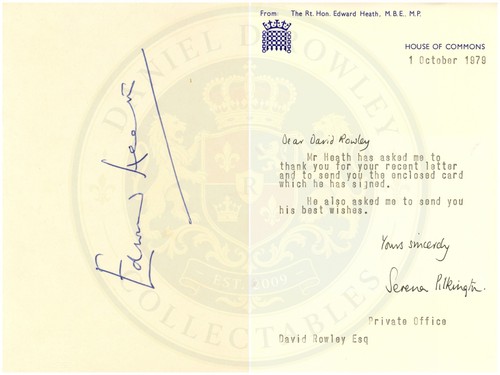 Edward Heath
From: The Rt. Hon. Edward Heath, M.B.E., M.P.
HOUSE OF COMMONS
1 October 1979
Dear David Rowley
Mr Heath has asked me to
thank you for your recent letter
and to send you the enclosed card
which he has signed.
He also asked me to send you
his best wishes.
Yours sincerely
Serena Pilkington.
Private Office
David Rowley Esq
DANIEL D ROWLEY
R
EST. 2009
COLLECTABLES